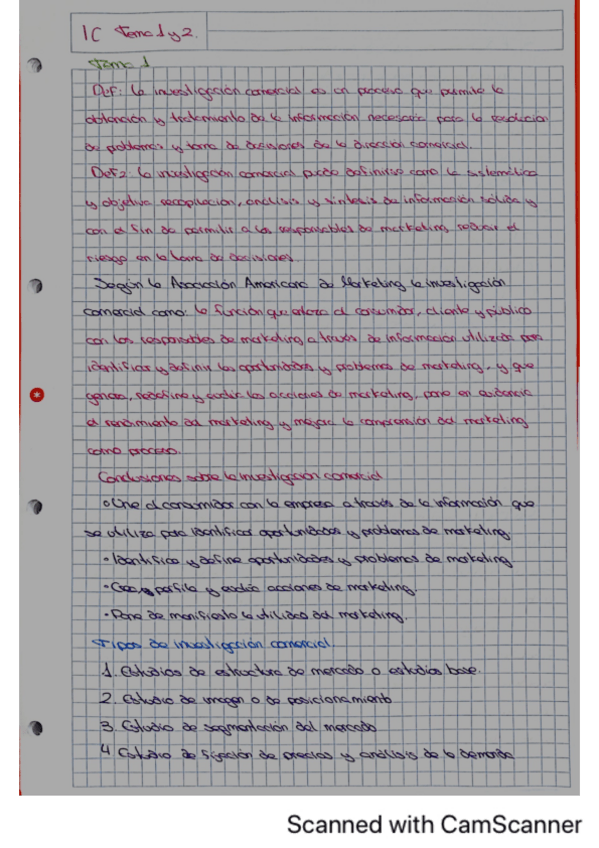 IC Tema 1 y 2.
Tema 1
Def: la investigación comercial es un proceso que permite la
obtención y tratamiento de la información necesaria para la resolución
de problemas y toma de decisiones de la dirección comercial.
Def2: la investigación comercial puede definirse como la sistemática
y objetiva recopilación, análisis y síntesis de información sólida y
con el fin de permitir a los responsables de marketing reducir el
riesgo en la toma de decisiones.
Según la Asociación Americana de Marketing la investigación
comercial como: la función que enlaza el consumidor, cliente y público
con los responsables de marketing a través de información utilizada para
identificar y definir las oportunidades y problemas de marketing, y que
genera, redefine y evalúa las acciones de marketing, pone en evidencia
el rendimiento del marketing y mejora la comprensión del marketing
como proceso.
Conclusiones sobre la investigación comercial
• Une el consumidor con la empresa a través de la información que
se utiliza para identificar oportunidades y problemas de marketing
• Identifica y define oportunidades y problemas de marketing
• Crea, perfila y evalúa acciones de marketing.
• Pone de manifiesto la utilidad del marketing.
Tipos de investigación comercial.
1. Estudios de estructura de mercado o estudios base.
2. Estudio de imagen o de posicionamiento
3. Estudio de segmentación del mercado
4 Estudio de fijación de precios y análisis de la demanda
Scanned with CamScanner